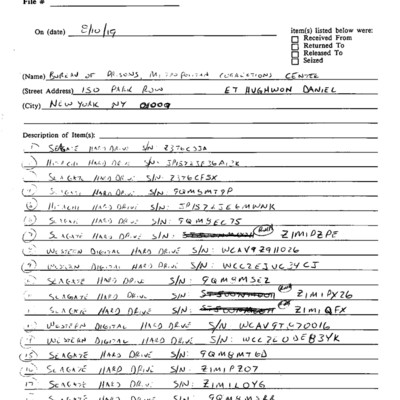 File #
On (date) 8/10/19
item(s) listed below were:
Received From
Returned To
Released To
Seized
(Name) BUREAU OF PRISONS, METROPOLITAN CORRECTIONS CENTER
(Street Address) 150 PARK ROW ET HUGHWON DANIEL
(City) NEW YORK NY 01009
Description of Item(s):
SEAGATE HARD DRIVE S/N Z376CSJA
HITACHI HARD DRIVE S/N:
SEAGATE HARD DRIVE S/N: Z376CFSX
SEAGATE HARD DRIVE S/N: 9QM8MT9P
HITACHI HARD DRIVE S/N: JP1572JE6MWNK
SEAGATE HARD DRIVE S/N: 9QM8EC75
7 SEAGATE HARD DRIVE S/N: Z1M1PZPE
8 WESTERN DIGITAL HARD DRIVE S/N: WCAV9Z911026
9 WESTERN DIGITAL HARD DRIVE S/N: WCC2EJUC34CJ
SEAGATE HARD DRIVE S/N: 9QM8MSEZ
SEAGATE HARD DRIVE S/N: Z1M1PX26
SEAGATE HARD DRIVE S/N: Z1M1QFX
WESTERN DIGITAL HARD DRIVE S/N
WESTERN DIGITAL HARD DRIVE S/N:
15 SEAGATE HARD DRIVE S/N: 9QM8MT6D
SEAGATE HARD DRIVE S/N: Z1M1PZ07
17 SEAGATE HARD DRIVE S/N: Z1M1LOY6
SEAGATE HARD DRIVE S/N: